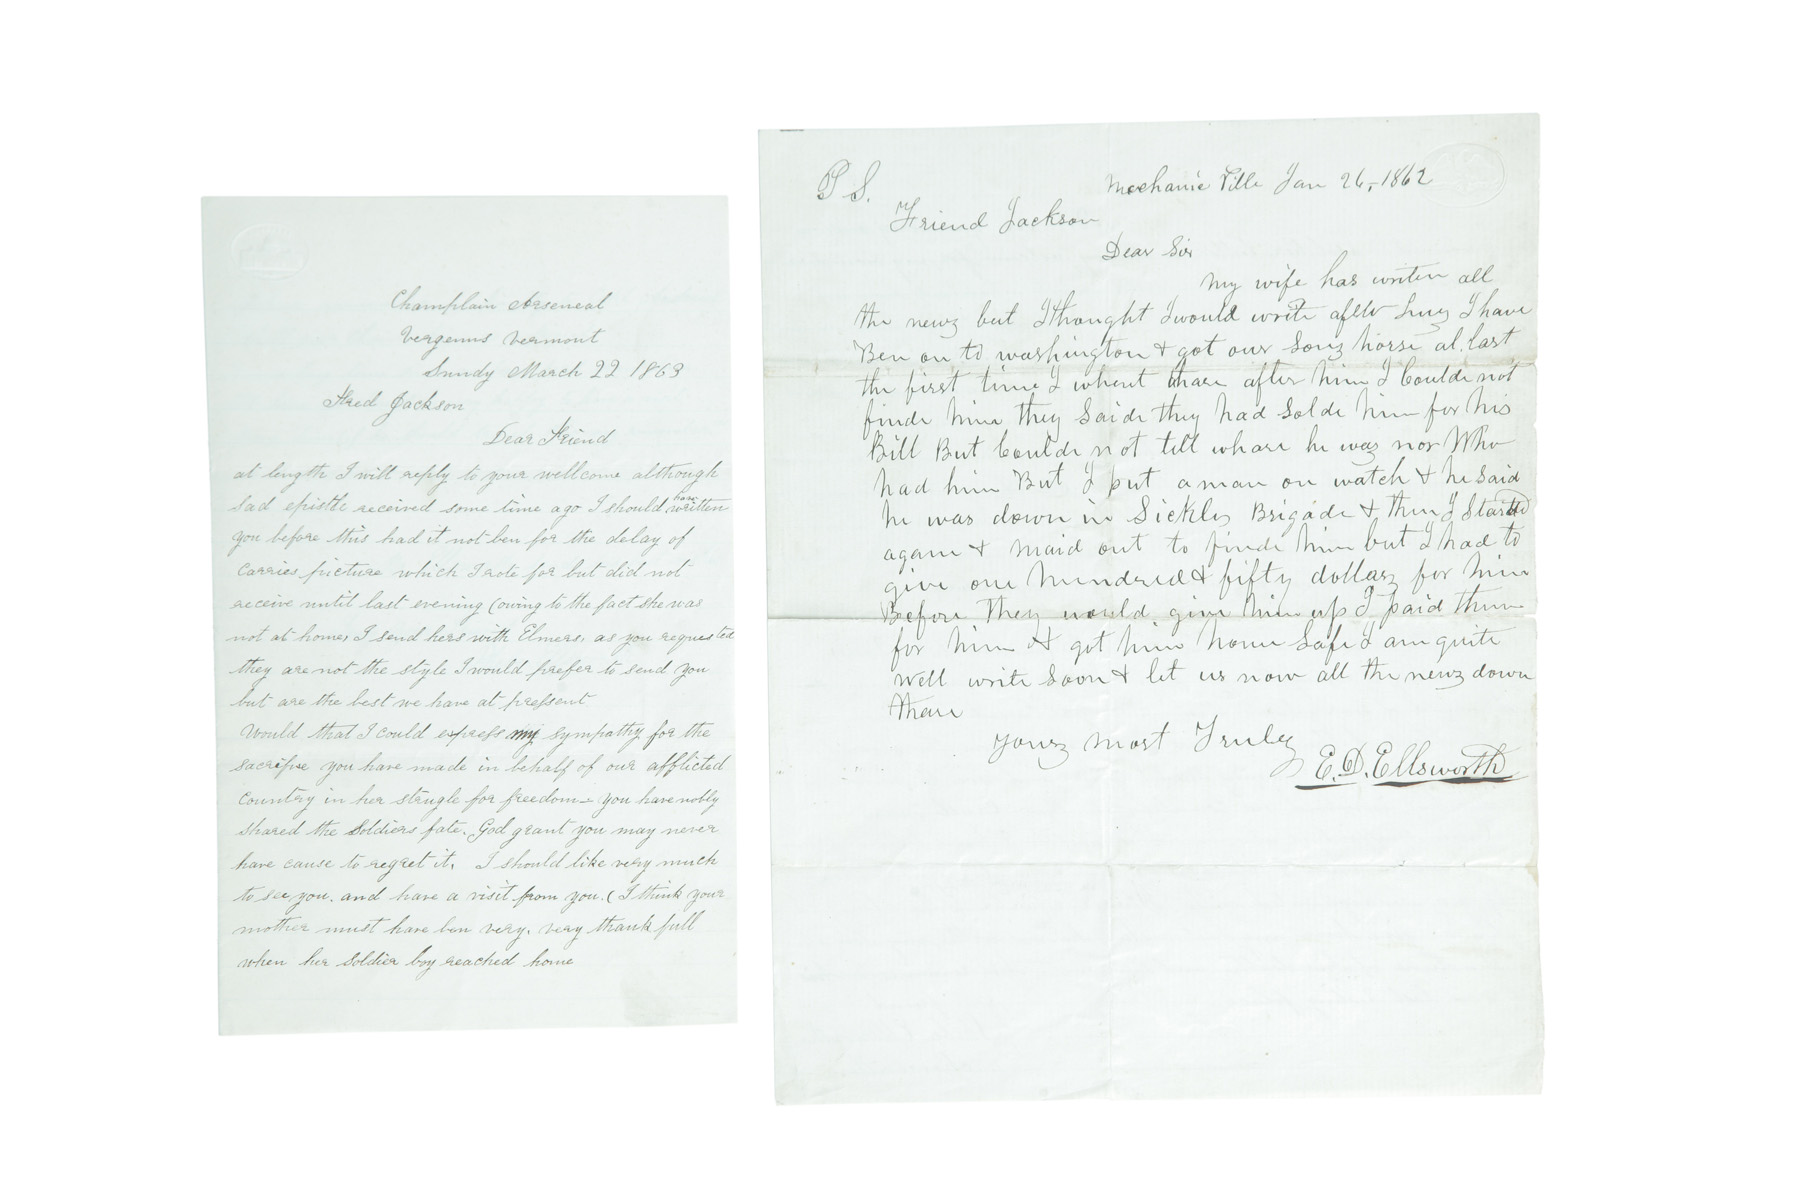 Champlain Arseneal
Vergenns Vermont
Sundy March 22 1863
Fred Jackson
Dear Friend
at length I will reply to your wellcome although
sad epistle received some time ago I should have written
you before this had it not ben for the delay of
Carries picture which I rote for but did not
receive until last evening (owing to the fact she was
not at home, I send hers with Elmers, as you requested
they are not the style I would prefer to send you
but are the best we have at pressent
Would that I could express my sympathy for the
sacrifise you have made in behalf of our afflicted
Country in her strugle for freedom – you have nobly
shared the Soldiers fate. God grant you may never
have cause to regret it. I should like very much
to see you. and have a visit from you. (I think your
mother must have ben very, very thankfull
when her Soldier boy reached home
P S.
Mechanic Ville Jan 26, 1862
Friend Jackson
Dear Sir
My wife has writen all
the newz but I thought I would write I have
Ben on to washington & got our Sonz horse at last
the first time I whent thare after him I Coulde not
finde him they Saide they had Solde him for his
Bill But Coulde not tell whare he waz nor Who
had him But I put a man on watch & he Said
he was down in Sickles Brigade & then I Started
again & maid out to finde him but I had to
give one hundred & fifty dollarz for him
Before they would give him up I paid them
for him & got him home Safe I am quite
well write Soon & let us now all the newz down
thare
Yourz most Truley
E. D. Ellsworth